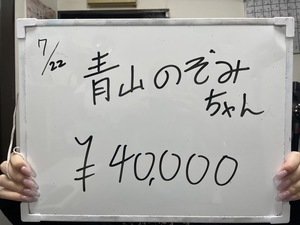 7/22
青山のぞみ
ちゃん
¥40,000